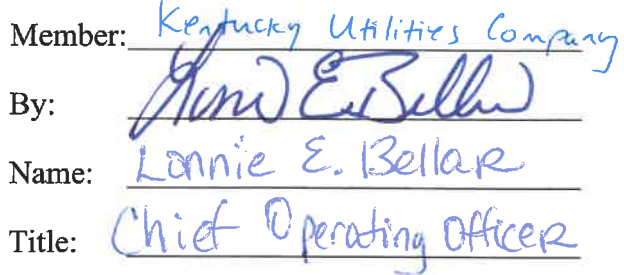 Member: Kentucky Utilities Company
By: Lonnie E. Bellar
Name: Lonnie E. Bellar
Title: Chief Operating Officer